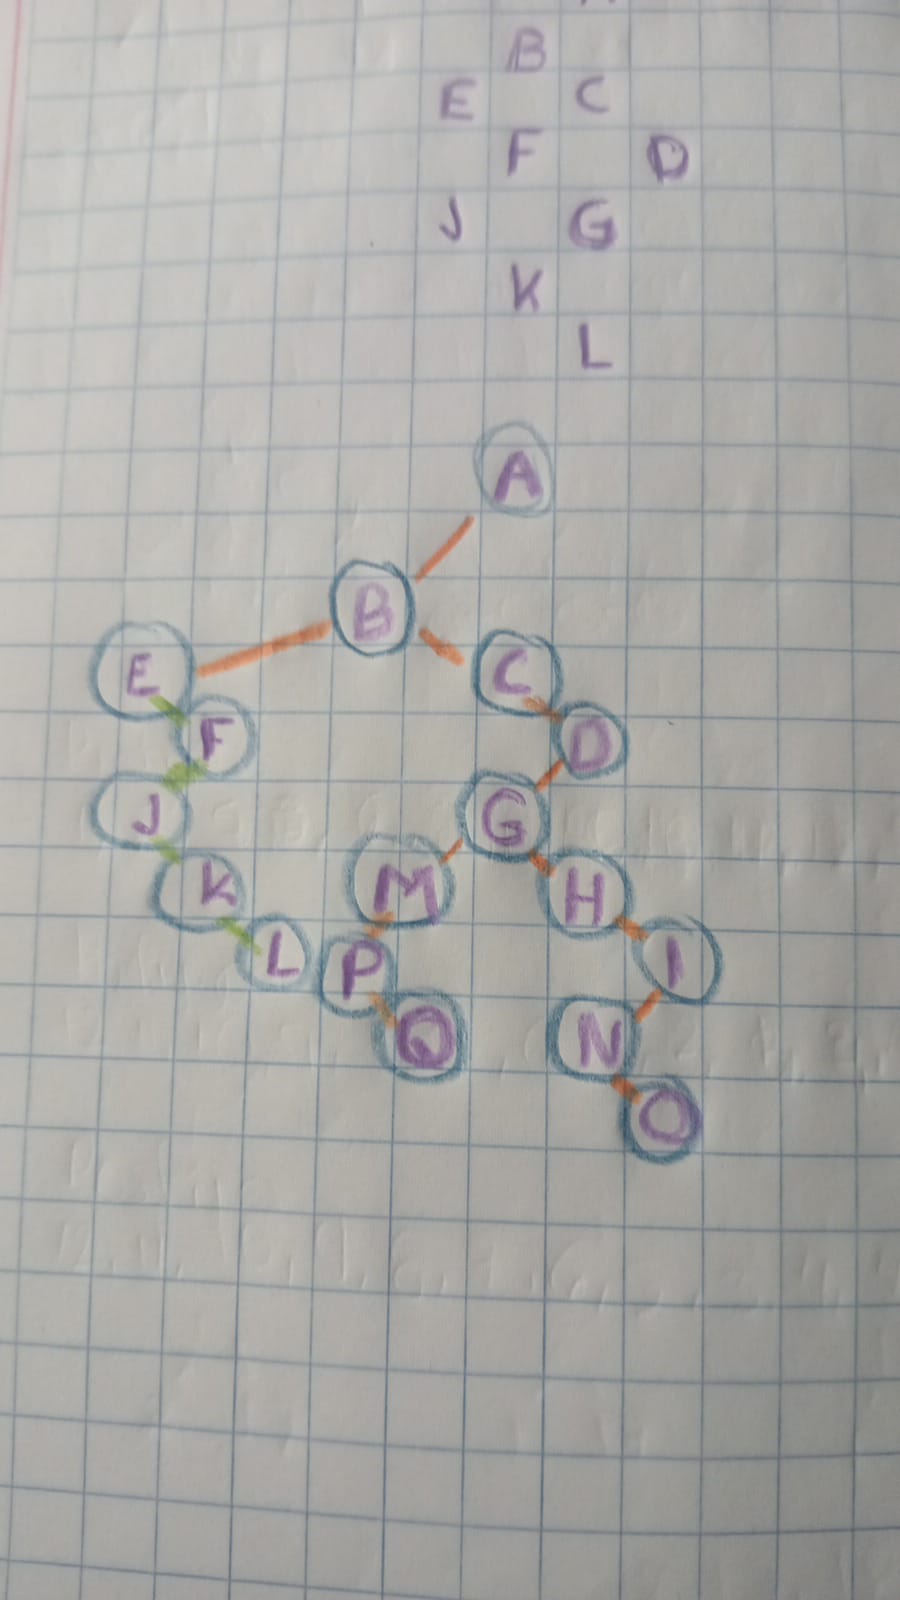 B
E C
F D
J G
K
L
A
B
E C
F D
J G
K M H
L P I
Q N
O